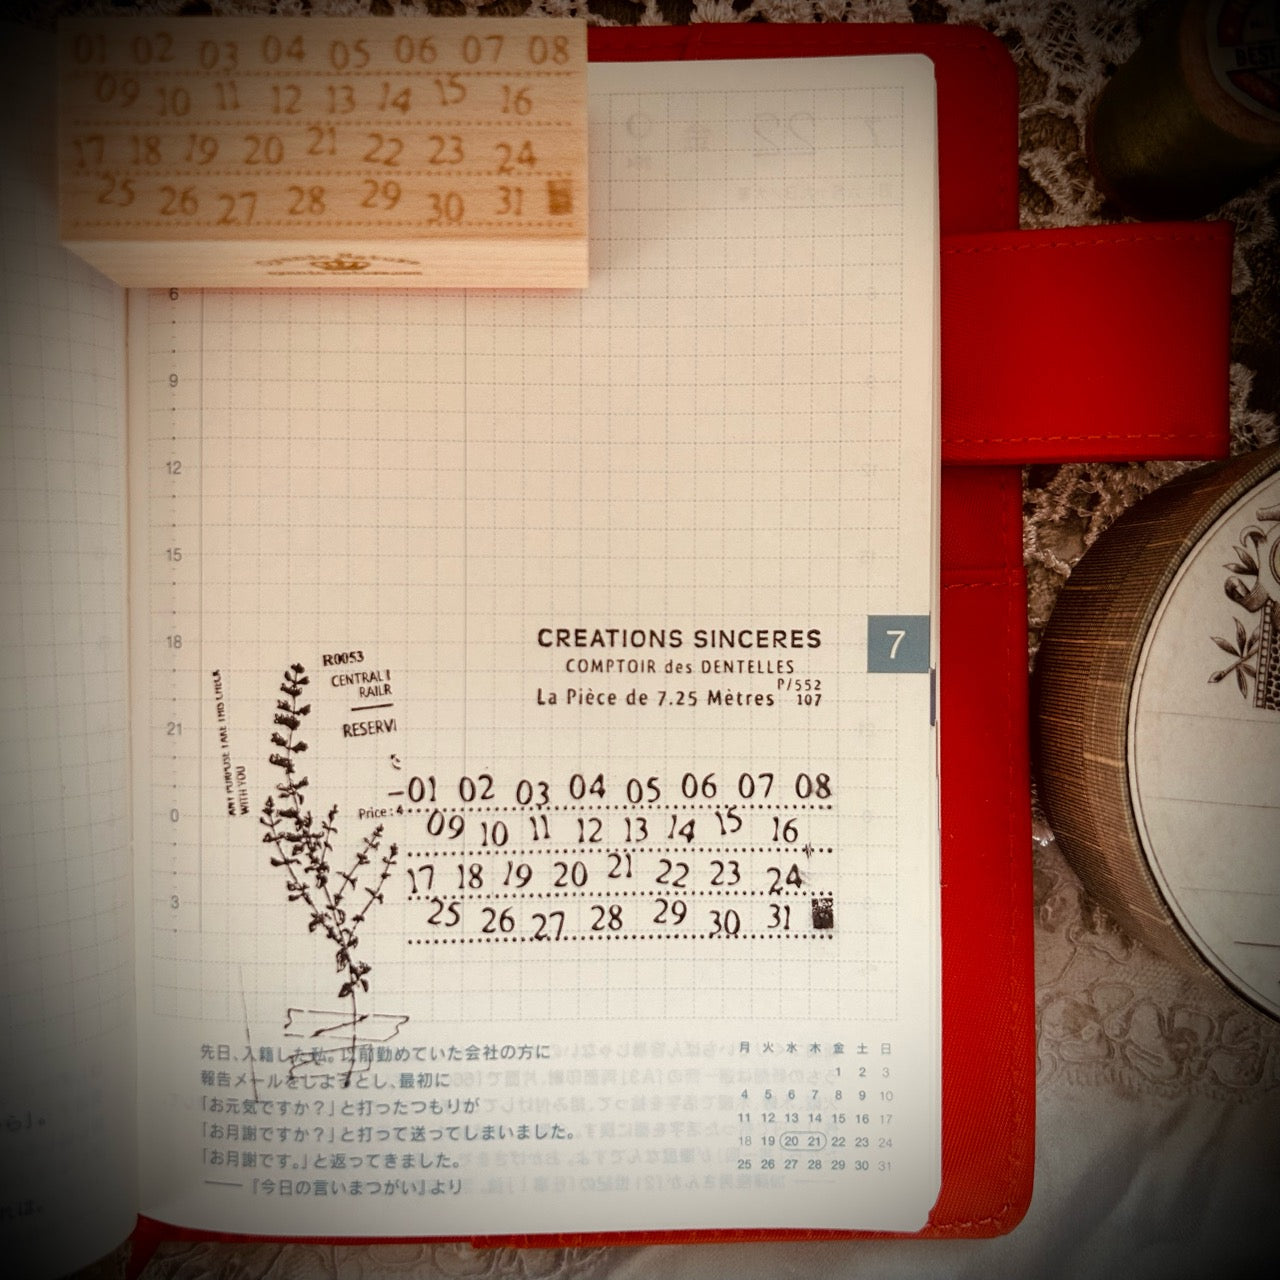 01 02 03 04 05 06 07 08
09 10 11 12 13 14 15 16
17 18 19 20 21 22 23 24
25 26 27 28 29 30 31
6
9
12
15
18
21
0
3
7
CREATIONS SINCERES
COMPTOIR des DENTELLES
La Pièce de 7.25 Mètres P/552
107
R0053
CENTRAL
RAILR
RESERV
ANY PURPOSE TAKE THIS CHECK
WITH YOU
Price: 4
01 02 03 04 05 06 07 08
09 10 11 12 13 14 15 16
17 18 19 20 21 22 23 24
25 26 27 28 29 30 31
先日、入籍した私。以前勤めていた会社の方に
報告メールをしようとし、最初に
「お元気ですか?」と打ったつもりが
「お月謝ですか?」と打って送ってしまいました。
「お月謝です。」と返ってきました。
──『今日の言いまつがい』より
月 火 水 木 金 土 日
1 2 3
4 5 6 7 8 9 10
11 12 13 14 15 16 17
18 19 20 21 22 23 24
25 26 27 28 29 30 31